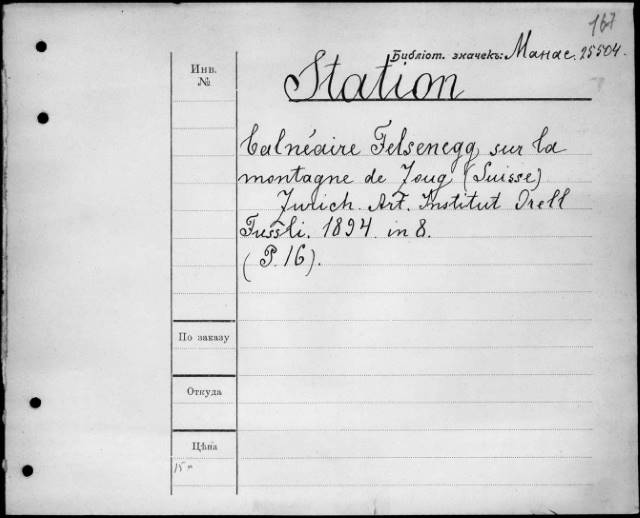 167
Библіот. значекъ: Манас. 25504.
Инв.
№
Station
balnéaire Felsenegg sur la
montagne de Zoug (Suisse)
Zurich. Art. Institut Orell
Fussli. 1894. in 8.
(P. 16).
По заказу
Откуда
Цѣна
15 к